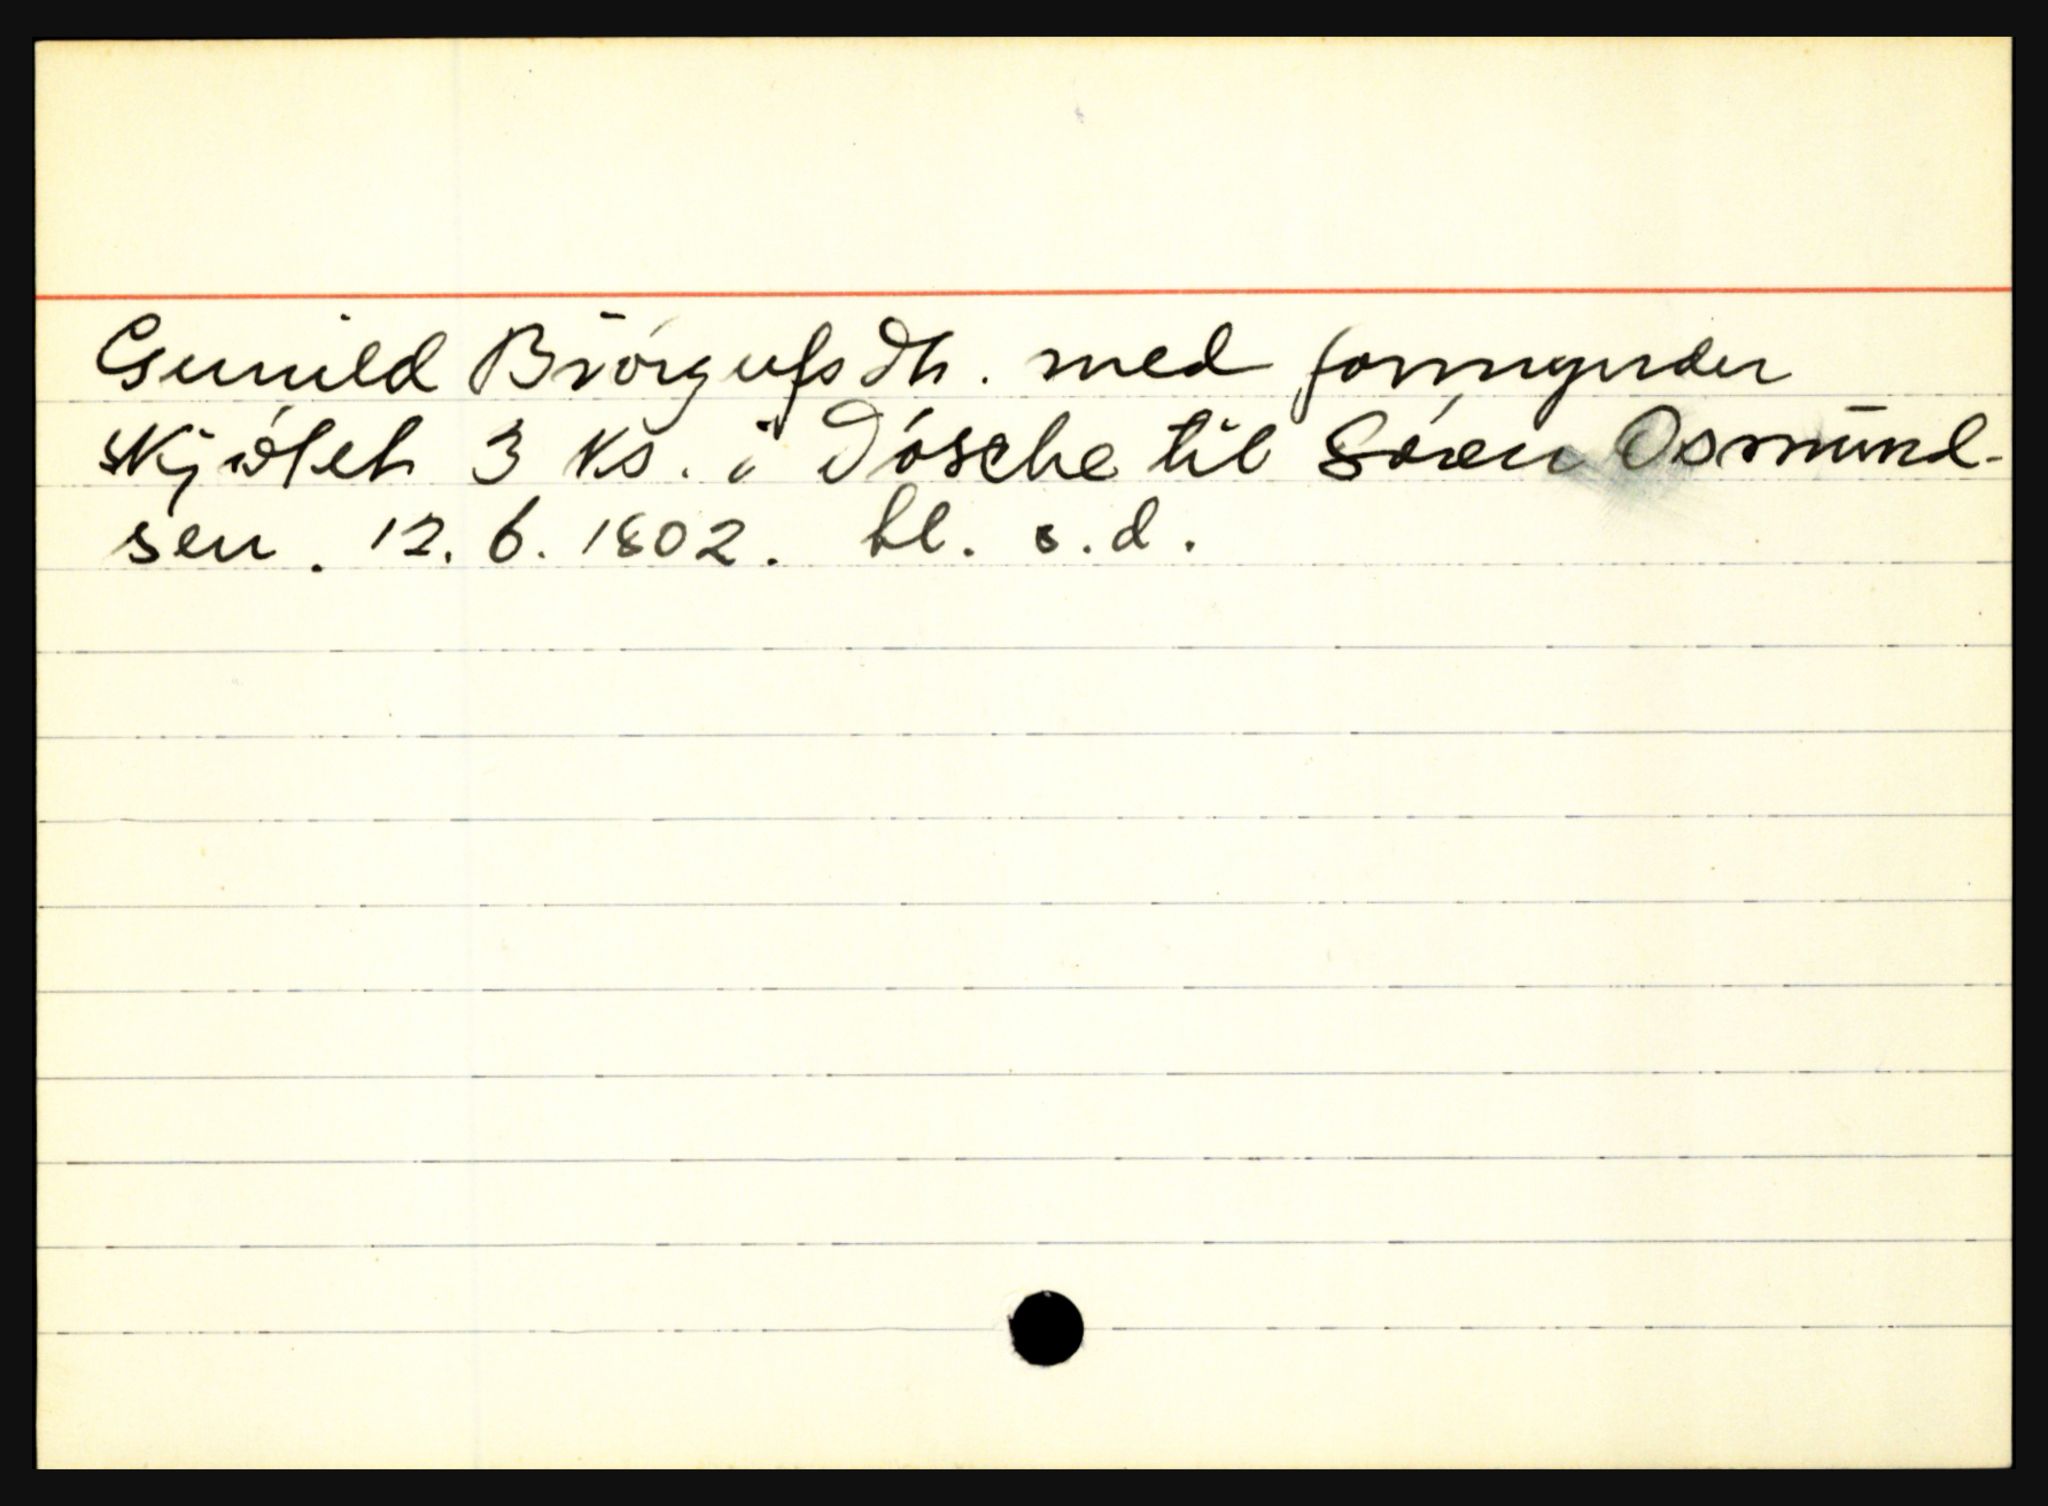 Gunild Biórgufs dtr. med formynder
skjótet 3 ks. i Dósche til Sóren Osmund-
sen. 12. 6. 1802. bl. s.d.